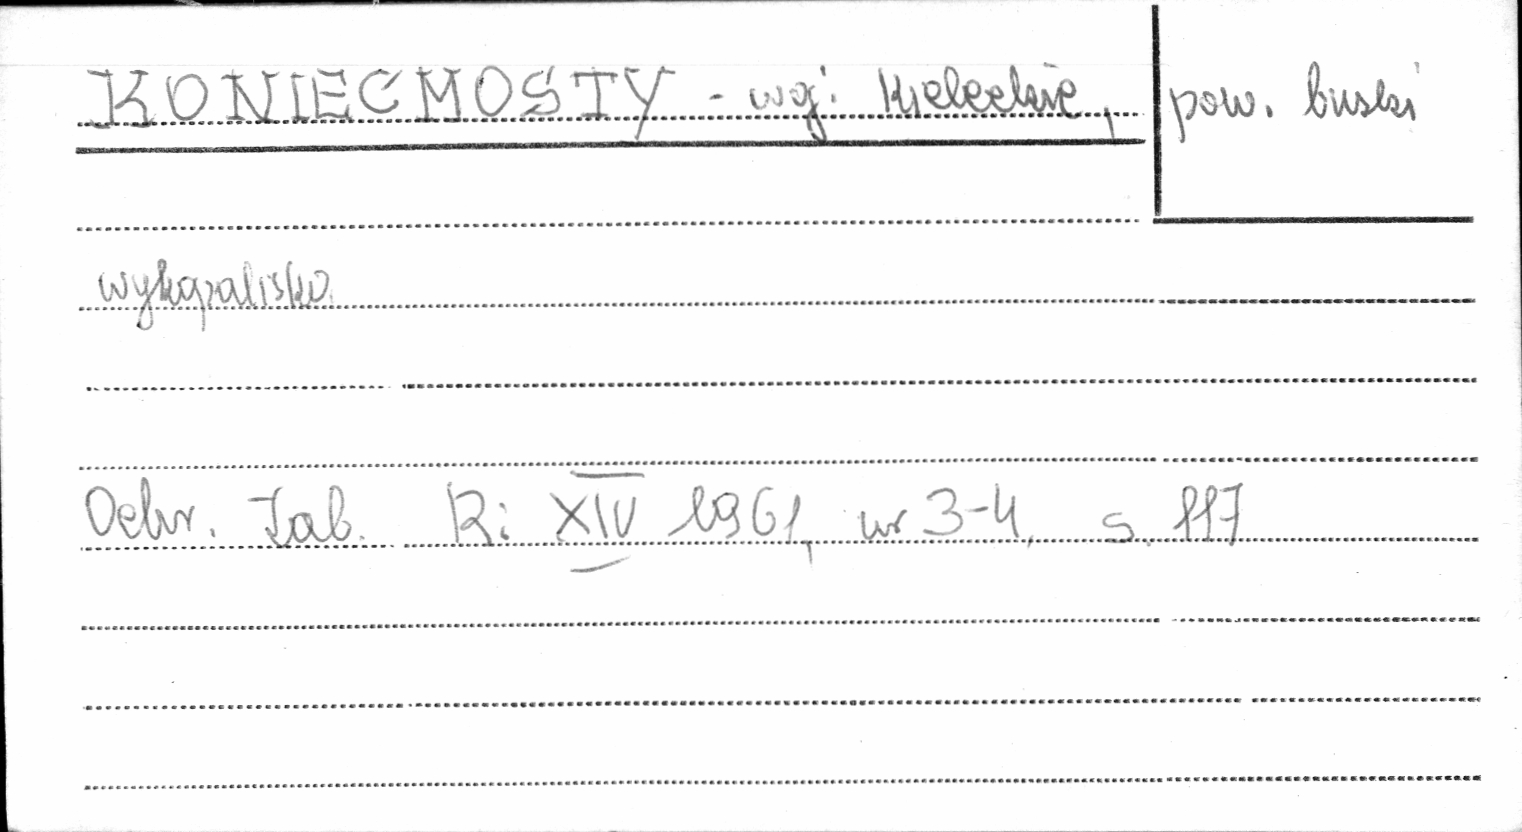 KONIECMOSTY - woj. kieleckie, pow. buski
wykopalisko
Ochr. Zab. R: XIV 1961, nr 3-4, s. 117